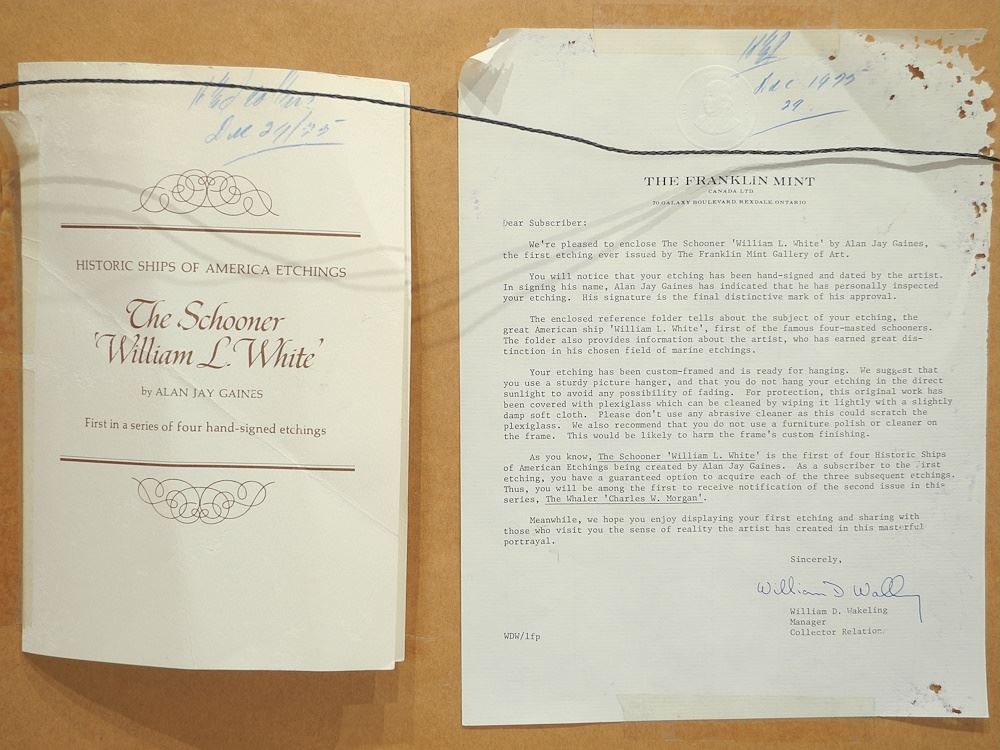 Dec 29/75
HISTORIC SHIPS OF AMERICA ETCHINGS
The Schooner
'William L. White'
by ALAN JAY GAINES
First in a series of four hand-signed etchings
Dec 1975
29
THE FRANKLIN MINT
CANADA LTD.
70 GALAXY BOULEVARD, REXDALE, ONTARIO
Dear Subscriber:
We're pleased to enclose The Schooner 'William L. White' by Alan Jay Gaines,
the first etching ever issued by The Franklin Mint Gallery of Art.
You will notice that your etching has been hand-signed and dated by the artist.
In signing his name, Alan Jay Gaines has indicated that he has personally inspected
your etching. His signature is the final distinctive mark of his approval.
The enclosed reference folder tells about the subject of your etching, the
great American ship 'William L. White', first of the famous four-masted schooners.
The folder also provides information about the artist, who has earned great dis-
tinction in his chosen field of marine etchings.
Your etching has been custom-framed and is ready for hanging. We suggest that
you use a sturdy picture hanger, and that you do not hang your etching in the direct
sunlight to avoid any possibility of fading. For protection, this original work has
been covered with plexiglass which can be cleaned by wiping it lightly with a slightly
damp soft cloth. Please don't use any abrasive cleaner as this could scratch the
plexiglass. We also recommend that you do not use a furniture polish or cleaner on
the frame. This would be likely to harm the frame's custom finishing.
As you know, The Schooner 'William L. White' is the first of four Historic Ships
of American Etchings being created by Alan Jay Gaines. As a subscriber to the first
etching, you have a guaranteed option to acquire each of the three subsequent etchings.
Thus, you will be among the first to receive notification of the second issue in this
series, The Whaler 'Charles W. Morgan'.
Meanwhile, we hope you enjoy displaying your first etching and sharing with
those who visit you the sense of reality the artist has created in this masterful
portrayal.
Sincerely,
William D Wakeling
William D. Wakeling
Manager
Collector Relations
WDW/lfp